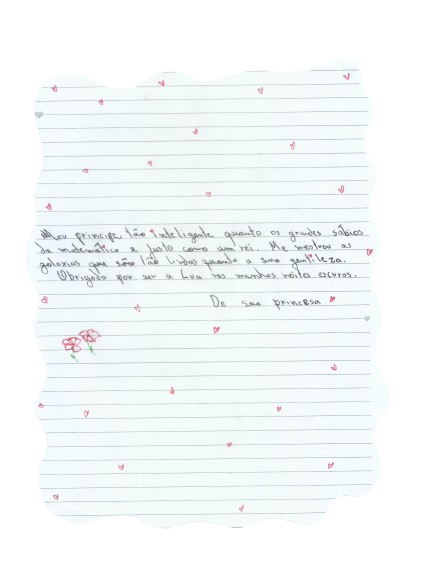 Meu principe tão inteligente quanto os grandes sábios
da matemática e justo como um rei. Me mostrou as
galaxias que são tão lindas quanto a sua gentileza.
Obrigada por ser a Lua nas minhas noites escuras.
De sua princesa